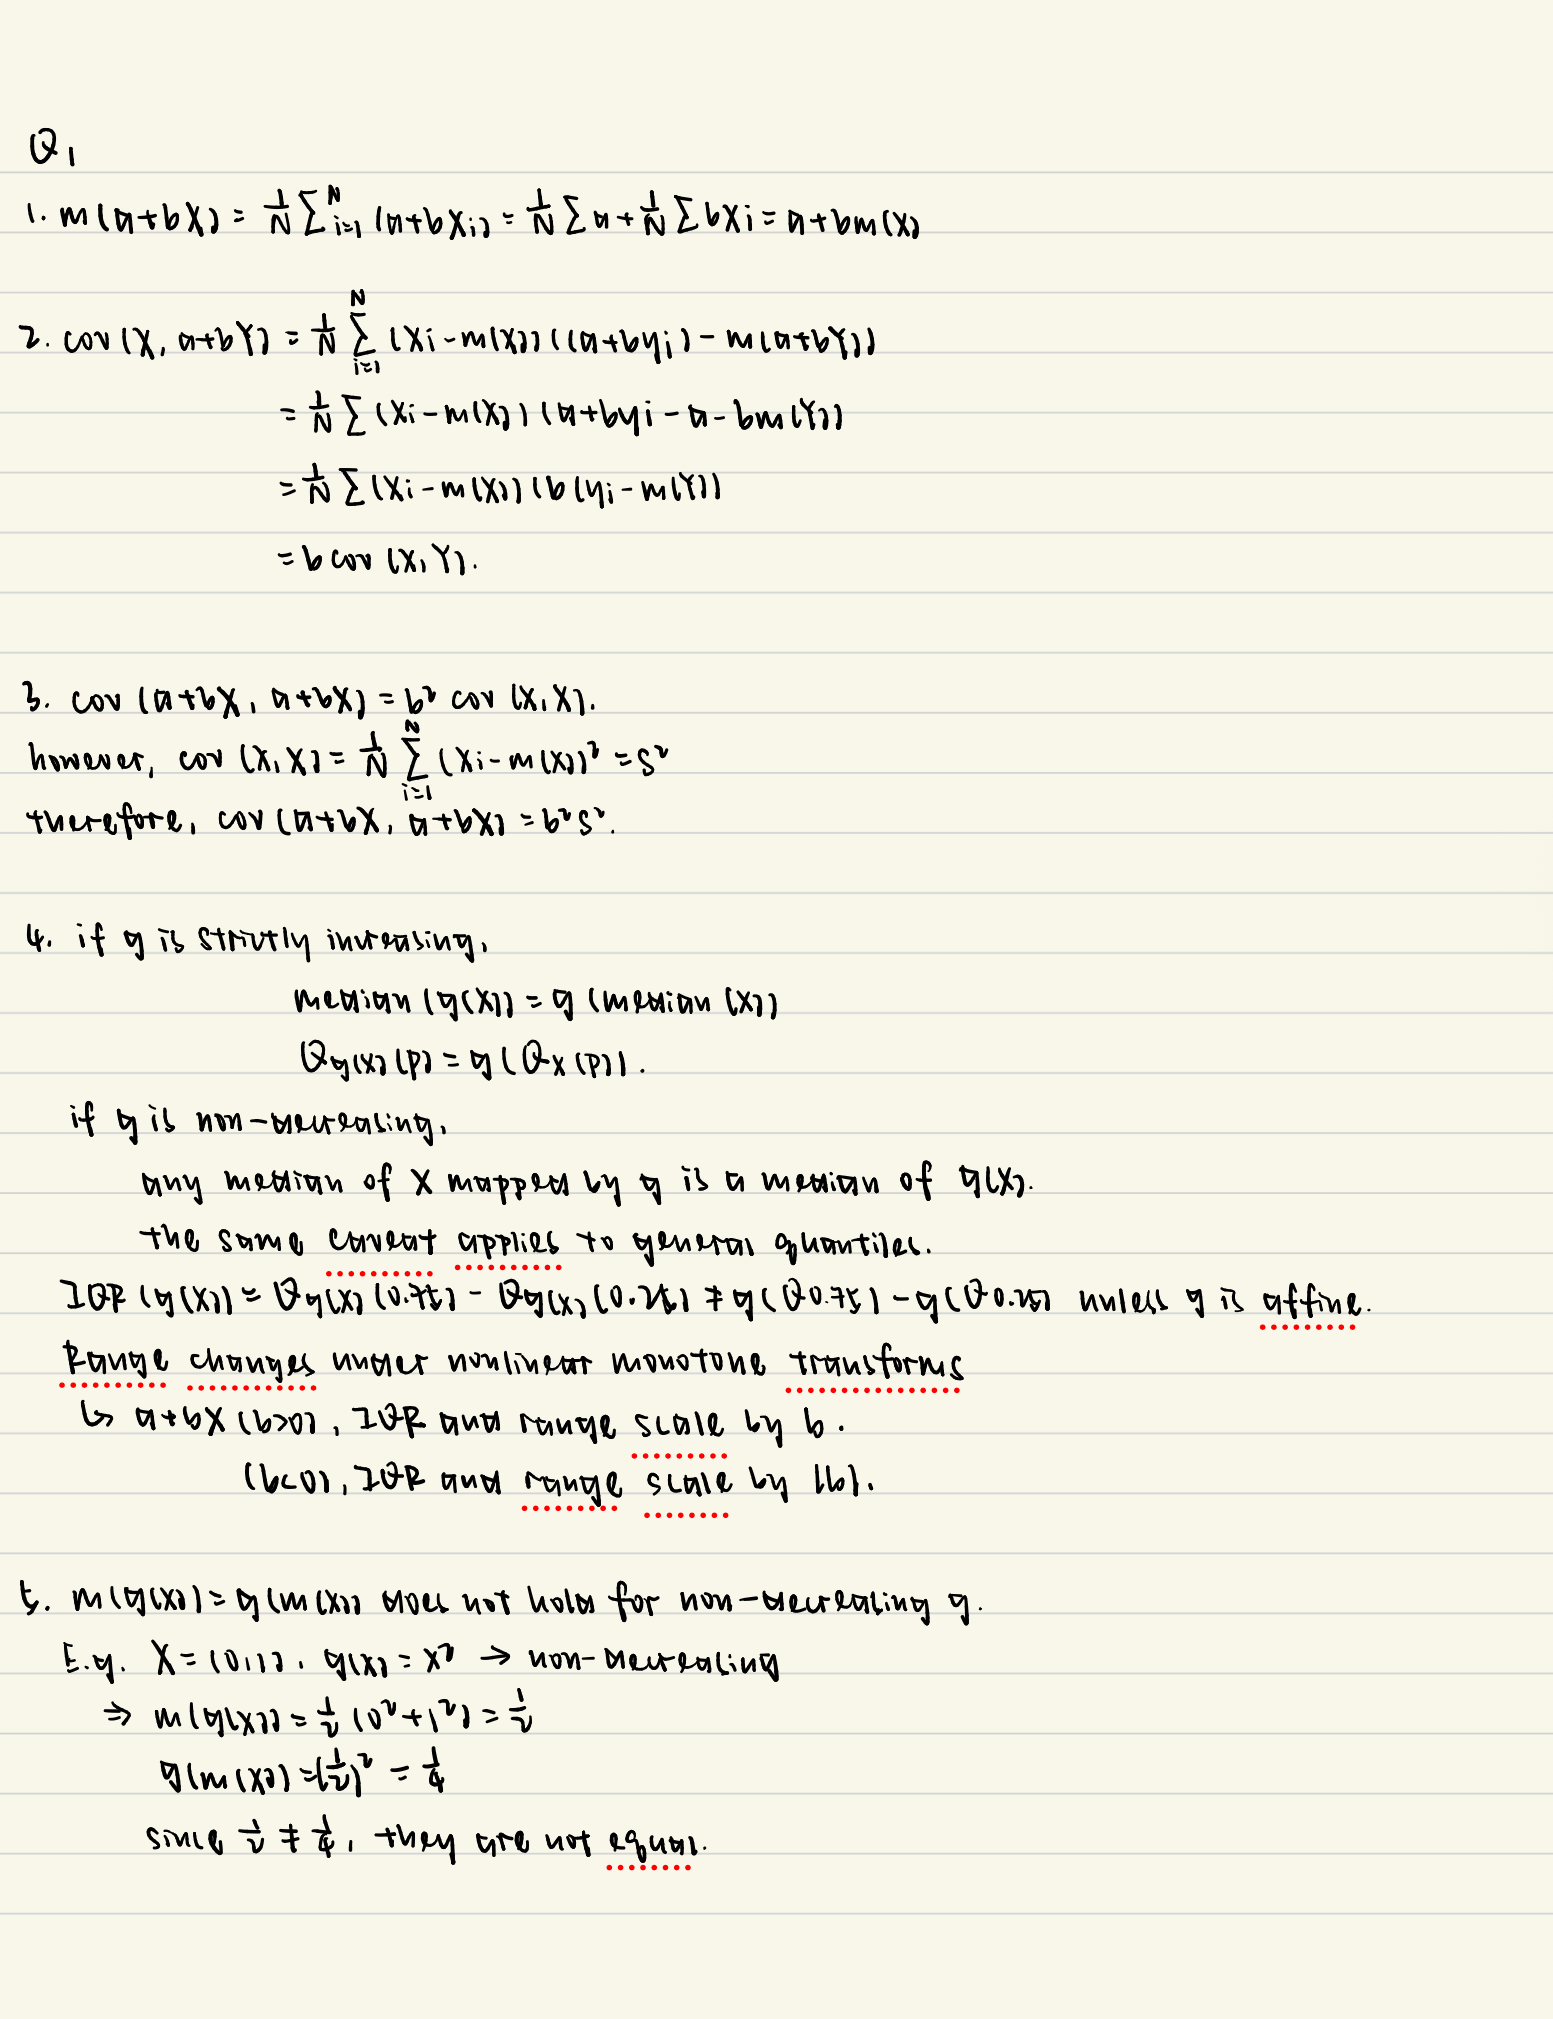 Q1
1. m(a+bX) = 1/N Σ_{i=1}^{N} (a+bXi) = 1/N Σ a + 1/N Σ bXi = a+bm(X)
2. cov(X, a+bY) = 1/N Σ_{i=1}^{N} (Xi-m(X))((a+byi)-m(a+bY))
= 1/N Σ (Xi-m(X))(a+byi-a-bm(Y))
= 1/N Σ (Xi-m(X))(b(yi-m(Y))
= b cov(X,Y).
3. cov(a+bX, a+bX) = b² cov(X,X).
however, cov(X,X) = 1/N Σ_{i=1}^{N} (Xi-m(X))² = S²
therefore, cov(a+bX, a+bX) = b²S².
4. if g is strictly increasing,
median(g(X)) = g(median(X))
Q_{g(X)}(p) = g(Q_X(p)).
if g is non-decreasing,
any median of X mapped by g is a median of g(X).
the same caveat applies to general quantiles.
IQR(g(X)) = Q_{g(X)}(0.75) - Q_{g(X)}(0.25) ≠ g(Q0.75) - g(Q0.25) unless g is affine.
Range changes under nonlinear monotone transforms
↳ a+bX (b>0), IQR and range scale by b.
(b<0), IQR and range scale by |b|.
5. m(g(X)) = g(m(X)) does not hold for non-decreasing g.
E.g. X=(0,1), g(x)=x² → non-decreasing
⇒ m(g(X)) = 1/2 (0²+1²) = 1/2
g(m(X)) = (1/2)² = 1/4
since 1/2 ≠ 1/4, they are not equal.